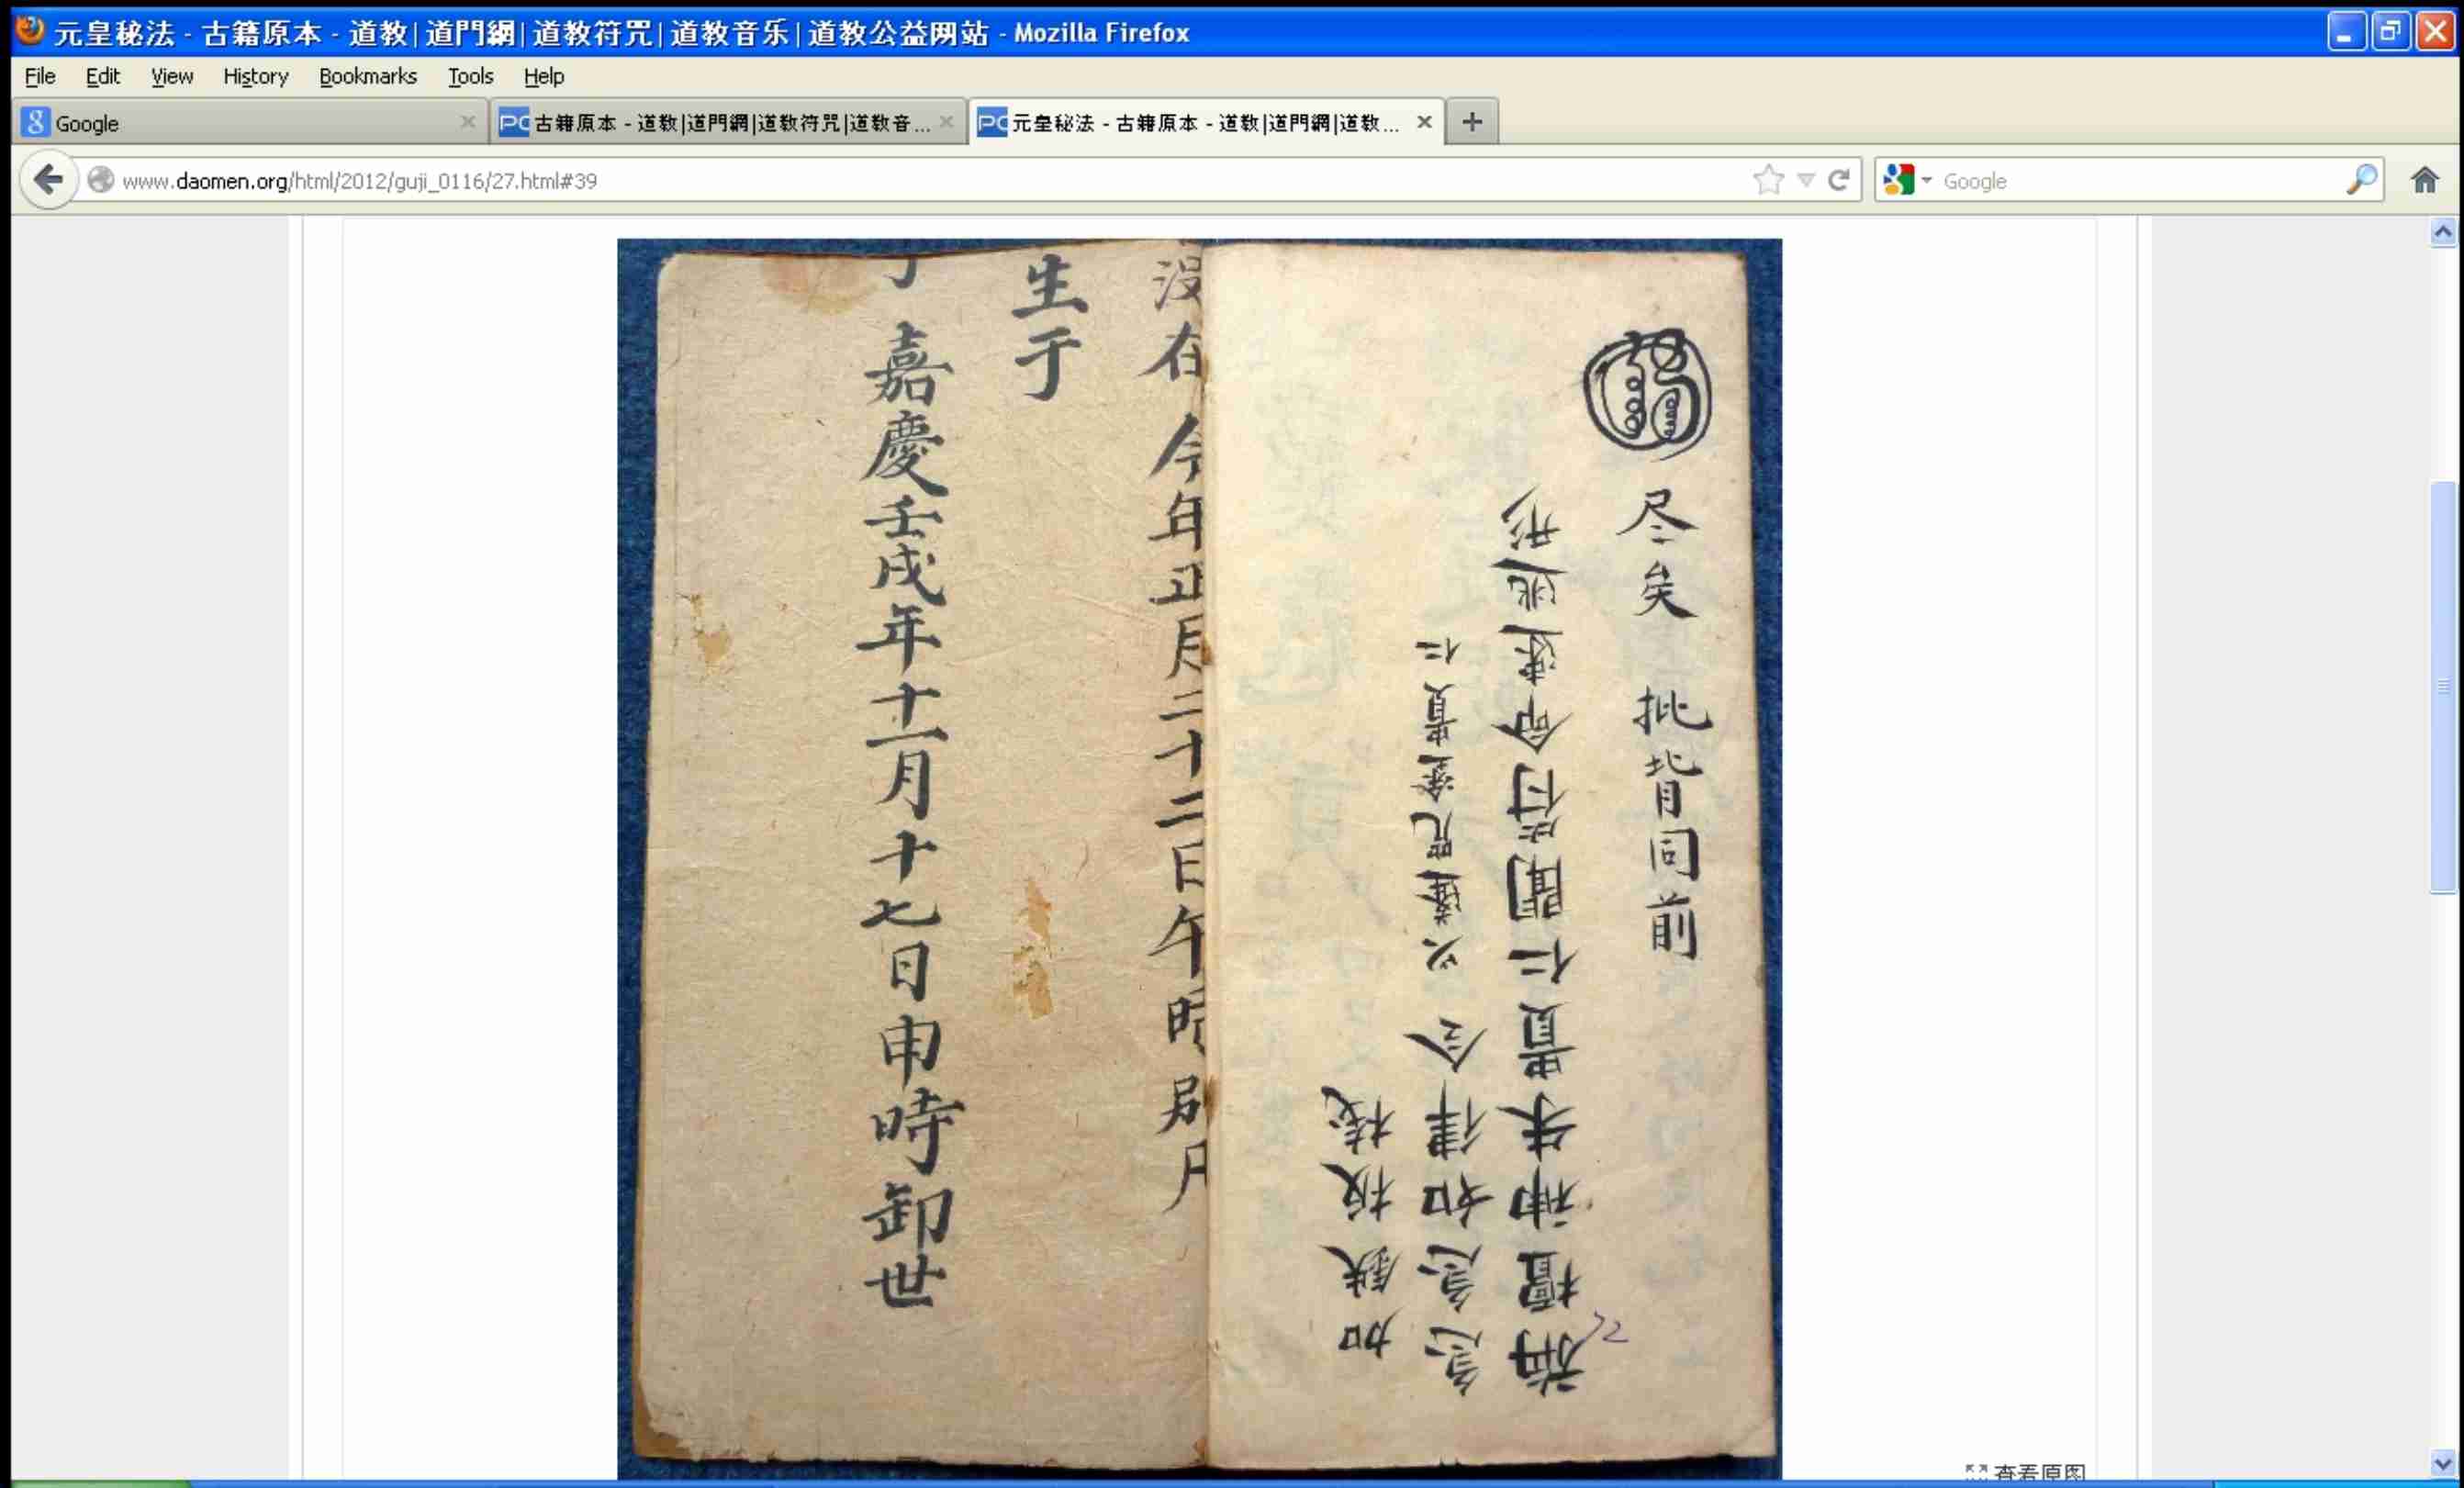 元皇秘法 - 古籍原本 - 道教|道門網|道教符咒|道教音乐|道教公益网站 - Mozilla Firefox
File Edit View History Bookmarks Tools Help
Google
古籍原本 - 道教|道門網|道教符咒|道教音...
元皇秘法 - 古籍原本 - 道教|道門網|道教...
www.daomen.org/html/2012/guji_0116/27.html#39
Google
尽矣 批背同前
檀神朱貴仁聞符命速逃形
急急如律令 又 咒塗貴仁
加鉄板
没在 今年正月二十二日午時
生于
嘉慶壬戌年十一月十七日申時卸世
查看原图